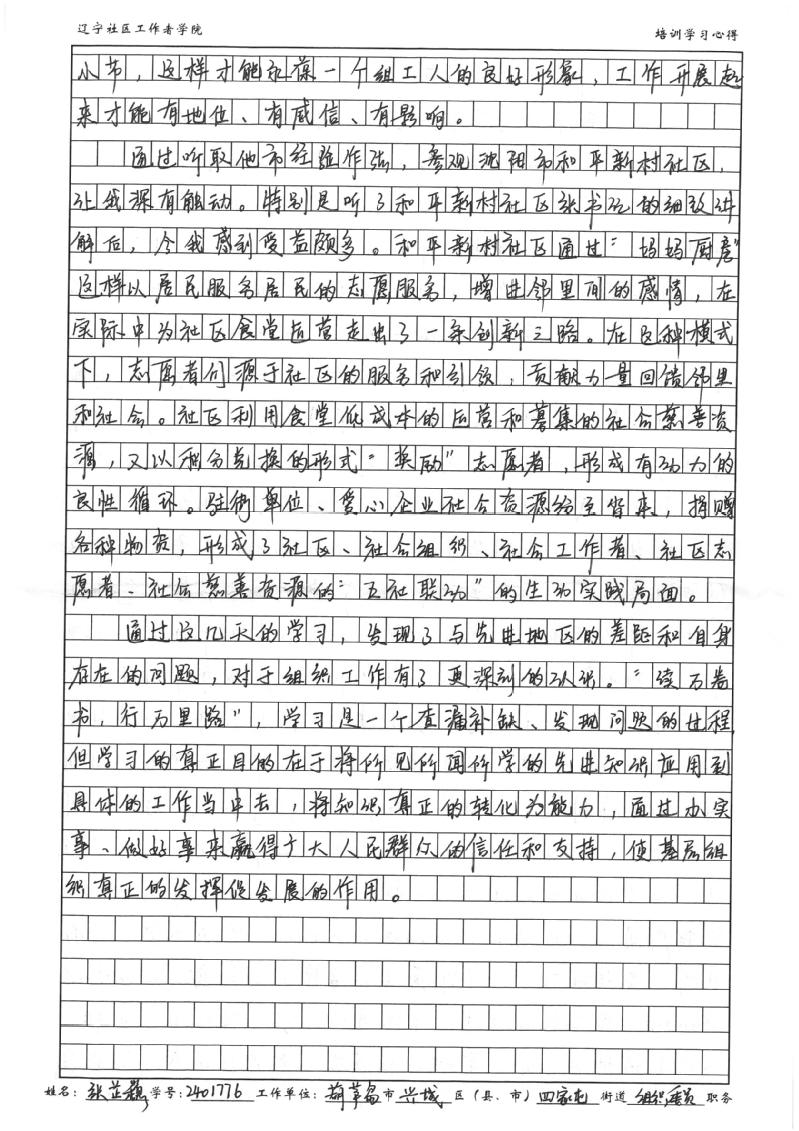 辽宁社区工作者学院 培训学习心得
小节，这样才能永葆一个组工人的良好形象，工作开展起
来才能有地位、有威信、有影响。
通过听取他市经验作法，参观沈阳市和平新村社区，
让我深有触动。特别是听了和平新村社区张书记的细致讲
解后，令我感到受益颇多。和平新村社区通过“妈妈厨房”
这样以居民服务居民的志愿服务，增进邻里间的感情，在
实际中为社区食堂运营走出了一条创新之路。在这种模式
下，志愿者们源于社区的服务和引领，贡献力量回馈邻里
和社会。社区利用食堂低成本的运营和募集的社会慈善资
源，又以积分兑换的形式“奖励”志愿者，形成有动力的
良性循环。驻街单位、爱心企业社会资源纷至沓来，捐赠
各种物资，形成了社区、社会组织、社会工作者、社区志
愿者、社会慈善资源的“五社联动”的生动实践局面。
通过这几天的学习，发现了与先进地区的差距和自身
存在的问题，对于组织工作有了更深刻的认识。“读万卷
书，行万里路”，学习是一个查漏补缺、发现问题的过程，
但学习的真正目的在于将所见所闻所学的先进知识应用到
具体的工作当中去，将知识真正的转化为能力，通过办实
事、做好事来赢得广大人民群众的信任和支持，使基层组
织真正的发挥促发展的作用。
姓名：张芷巍 学号：2401776 工作单位：葫芦岛市 兴城 区（县、市）四家屯 街道 组织委员 职务